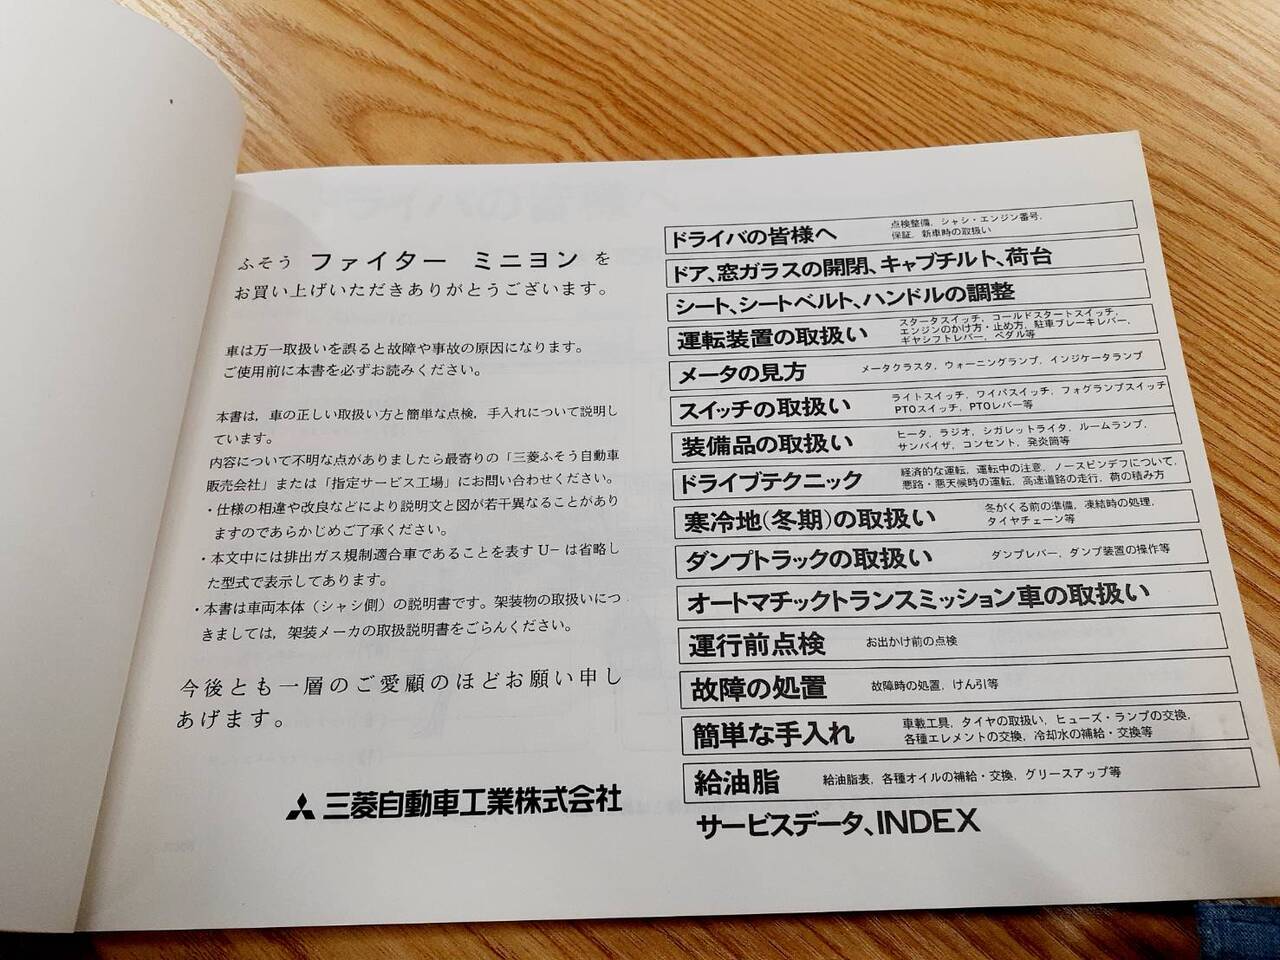 ふそう ファイター ミニヨン を
お買い上げいただきありがとうございます。
車は万一取扱いを誤ると故障や事故の原因になります。
ご使用前に本書を必ずお読みください。
本書は,車の正しい取扱い方と簡単な点検,手入れについて説明し
ています。
内容について不明な点がありましたら最寄りの「三菱ふそう自動車
販売会社」または「指定サービス工場」にお問い合わせください。
・仕様の相違や改良などにより説明文と図が若干異なることがあり
ますのであらかじめご了承ください。
・本文中には排出ガス規制適合車であることを表すU-は省略し
た型式で表示してあります。
・本書は車両本体(シャシ側)の説明書です。架装物の取扱いにつ
きましては,架装メーカの取扱説明書をごらんください。
今後とも一層のご愛顧のほどお願い申し
あげます。
三菱自動車工業株式会社
ドライバの皆様へ 点検整備,シャシ・エンジン番号,
保証,新車時の取扱い
ドア、窓ガラスの開閉、キャブチルト、荷台
シート、シートベルト、ハンドルの調整
運転装置の取扱い スタータスイッチ,コールドスタートスイッチ,
エンジンのかけ方・止め方,駐車ブレーキレバー,
ギヤシフトレバー,ペダル等
メータの見方 メータクラスタ,ウォーニングランプ,インジケータランプ
スイッチの取扱い ライトスイッチ,ワイパスイッチ,フォグランプスイッチ
PTOスイッチ,PTOレバー等
装備品の取扱い ヒータ,ラジオ,シガレットライタ,ルームランプ,
サンバイザ,コンセント,発炎筒等
ドライブテクニック 経済的な運転,運転中の注意,ノースピンデフについて,
悪路・悪天候時の運転,高速道路の走行,荷の積み方
寒冷地(冬期)の取扱い 冬がくる前の準備,凍結時の処理,
タイヤチェーン等
ダンプトラックの取扱い ダンプレバー,ダンプ装置の操作等
オートマチックトランスミッション車の取扱い
運行前点検 お出かけ前の点検
故障の処置 故障時の処置,けん引等
簡単な手入れ 車載工具,タイヤの取扱い,ヒューズ・ランプの交換,
各種エレメントの交換,冷却水の補給・交換等
給油脂 給油脂表,各種オイルの補給・交換,グリースアップ等
サービスデータ、INDEX